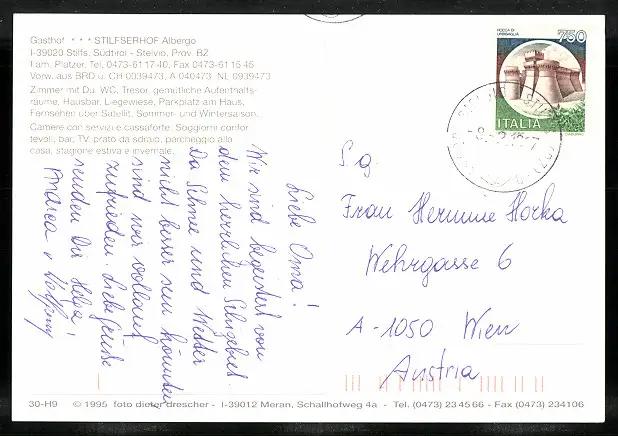 Gasthof * * * STILFSERHOF Albergo
I-39020 Stilfs, Südtirol - Stelvio, Prov. BZ
Fam. Platzer, Tel. 0473-61 17 40, Fax 0473-61 16 45
Vorw. aus BRD u. CH 0039473, A 040473, NL 0939473
Zimmer mit Du, WC, Tresor, gemütliche Aufenthalts-
räume, Hausbar, Liegewiese, Parkplatz am Haus,
Fernsehen über Satellit. Sommer- und Wintersaison.
Camere con servizi e cassaforte. Soggiorni confor-
tevoli, bar, TV, prato da sdraio, parcheggio alla
casa, stagione estiva e invernale.
Liebe Oma!
Wir sind begeistert von
dem herrlichen Schigebiet.
Da Schnee und Wetter
nicht besser sein könnten
sind wir vollauf
zufrieden. Liebe Grüße
senden Dir Helga,
Andrea u Wolfgang
ROCCA DI
URBISAGLIA
750
ITALIA
Sg.
Frau Hermine Horka
Wehrgasse 6
A-1050 Wien
Austria
30-H9 © 1995 foto dieter drescher - I-39012 Meran, Schallhofweg 4a - Tel. (0473) 23 45 66 - Fax (0473) 234106